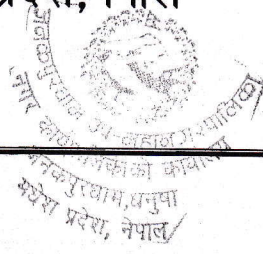 जनकपुरधाम उप-महानगरपालिका
कार्यपालिकाको कार्यालय
जनकपुरधाम, धनुषा
मधेश प्रदेश, नेपाल